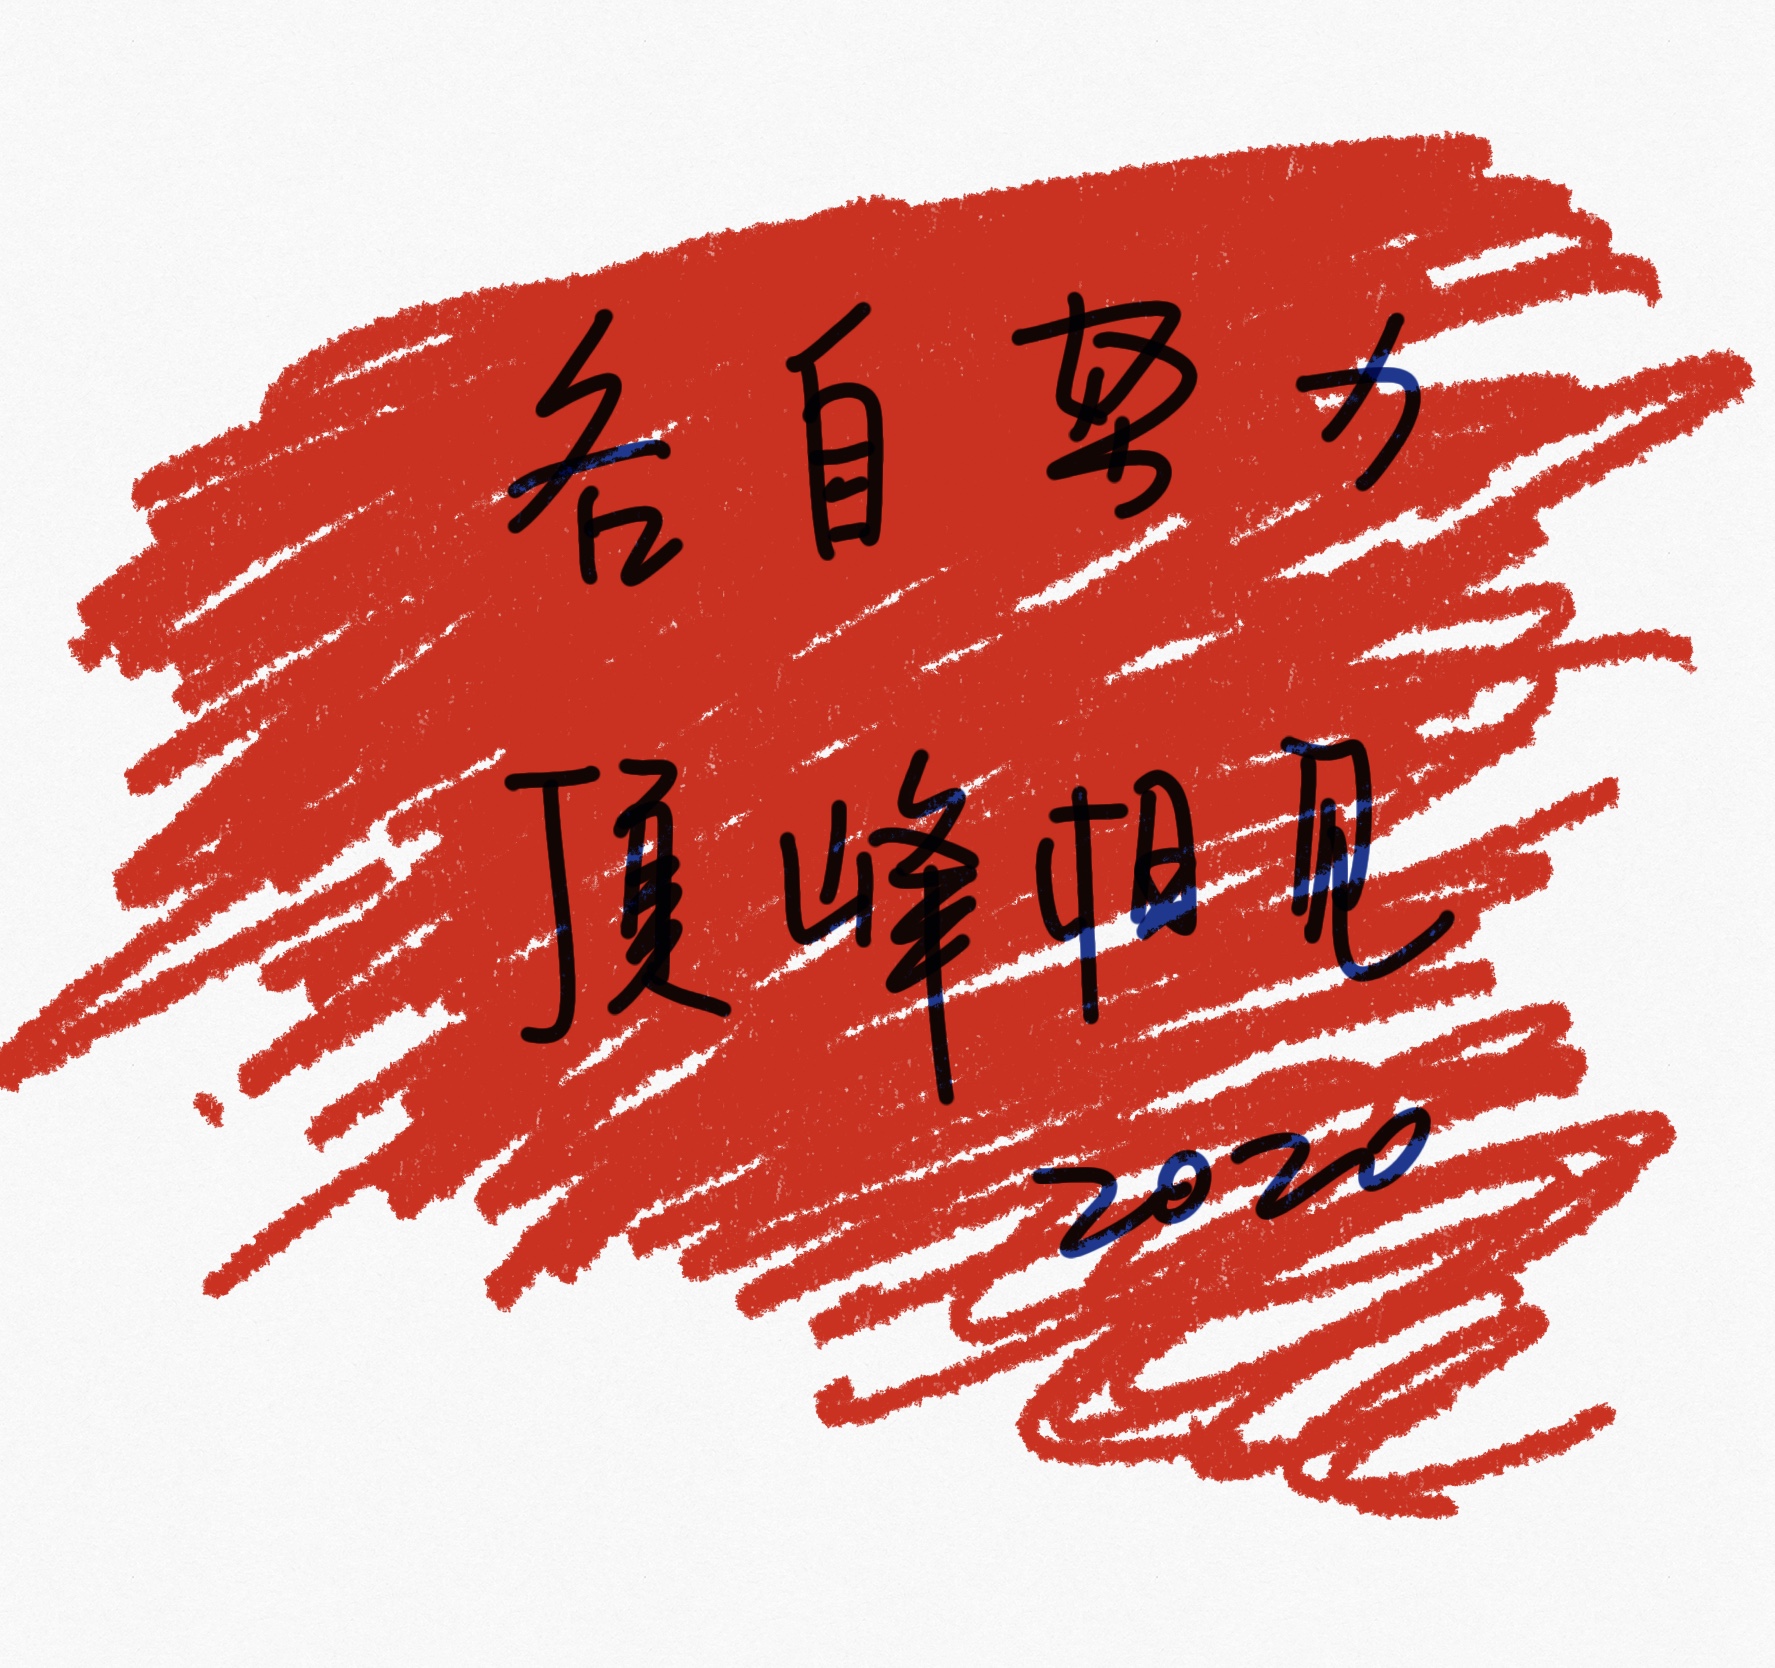 各自努力
頂峰相见
2020